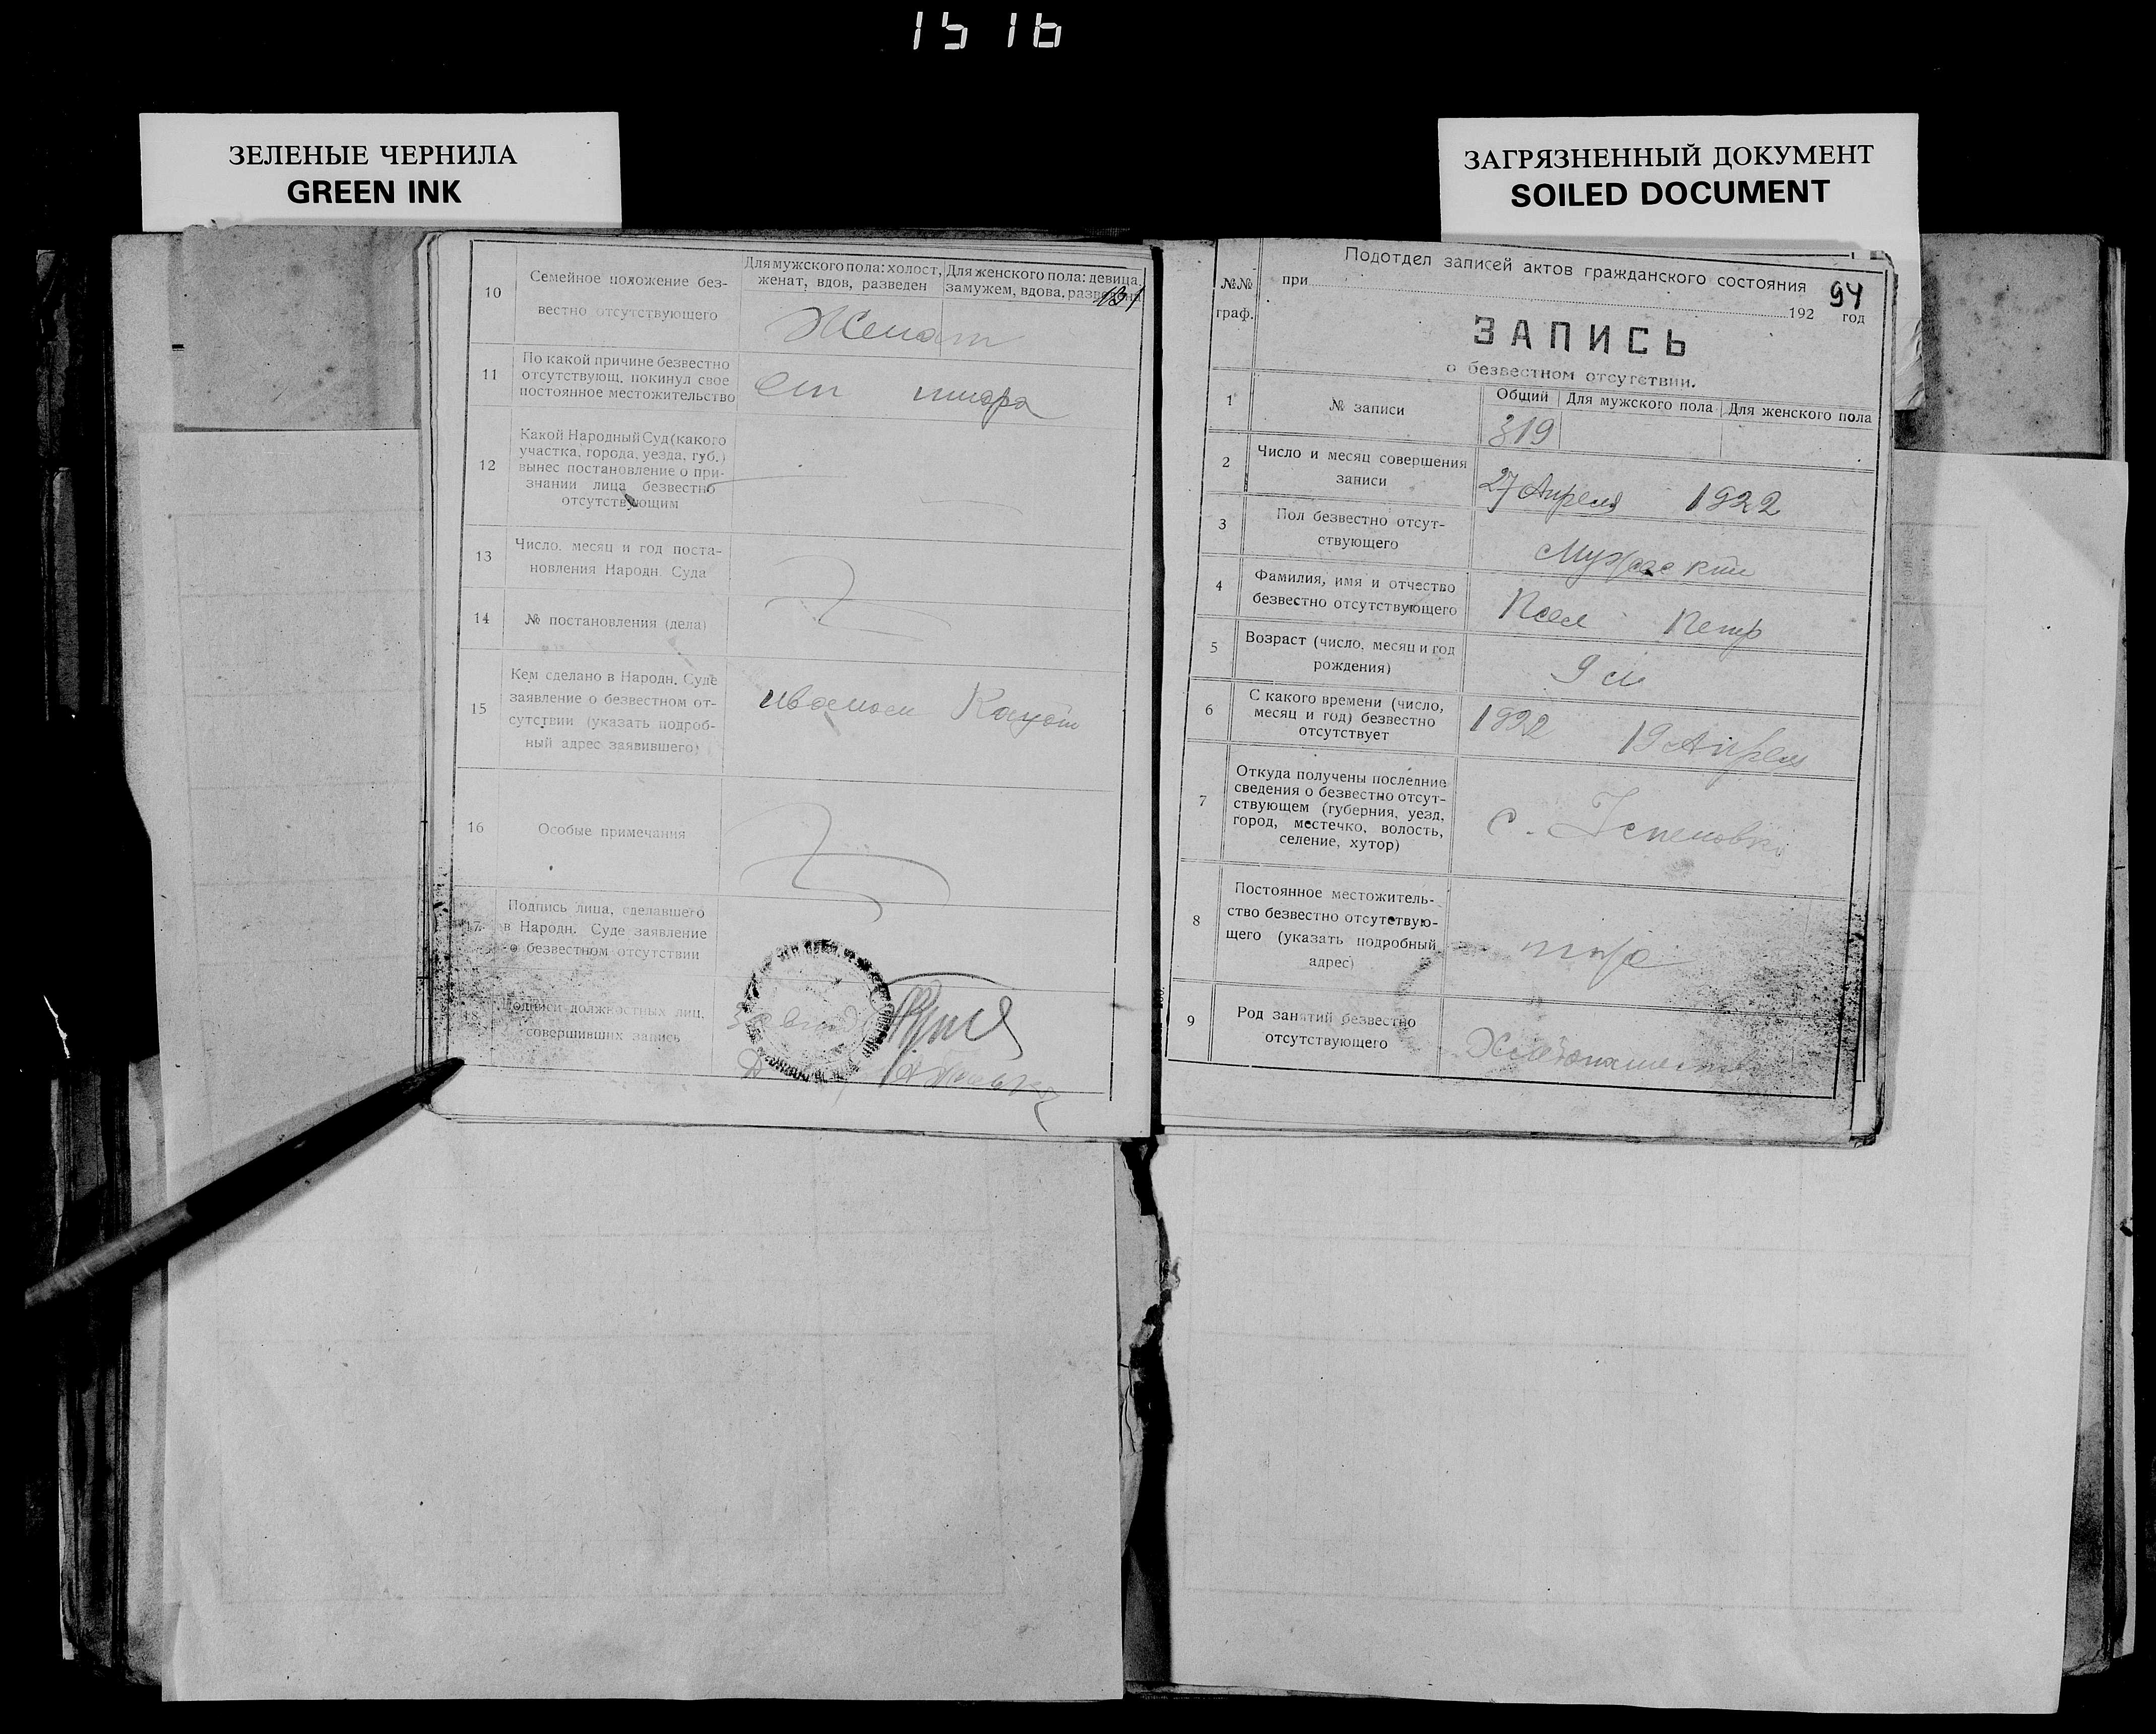 1516
ЗЕЛЕНЫЕ ЧЕРНИЛА
GREEN INK
ЗАГРЯЗНЕННЫЙ ДОКУМЕНТ
SOILED DOCUMENT
10
Семейное положение без-
вестно отсутствующего
Для мужского пола: холост,
женат, вдов, разведен
Для женского пола: девица,
замужем, вдова, разведена
131
Женат
11
По какой причине безвестно
отсутствующ. покинул свое
постоянное местожительство
12
Какой Народный Суд (какого
участка, города, уезда, губ.)
вынес постановление о при-
знании лица безвестно
отсутствующим
13
Число, месяц и год поста-
новления Народн. Суда
14
№ постановления (дела)
15
Кем сделано в Народн. Суде
заявление о безвестном от-
сутствии (указать подроб-
ный адрес заявившего)
16
Особые примечания
17
Подпись лица, сделавшего
в Народн. Суде заявление
о безвестном отсутствии
Подписи должностных лиц,
совершивших запись
№№
граф.
Подотдел записей актов гражданского состояния
94
при
192 год
ЗАПИСЬ
о безвестном отсутствии.
1
№ записи
Общий
Для мужского пола
Для женского пола
319
2
Число и месяц совершения
записи
27 Апреля 1922
3
Пол безвестно отсут-
ствующего
Мужский
4
Фамилия, имя и отчество
безвестно отсутствующего
Петр
5
Возраст (число, месяц и год
рождения)
9 м
6
С какого времени (число,
месяц и год) безвестно
отсутствует
1922 19 Апреля
7
Откуда получены последние
сведения о безвестно отсут-
ствующем (губерния, уезд,
город, местечко, волость,
селение, хутор)
с. Успеновка
8
Постоянное местожитель-
ство безвестно отсутствую-
щего (указать подробный
адрес)
9
Род занятий безвестно
отсутствующего